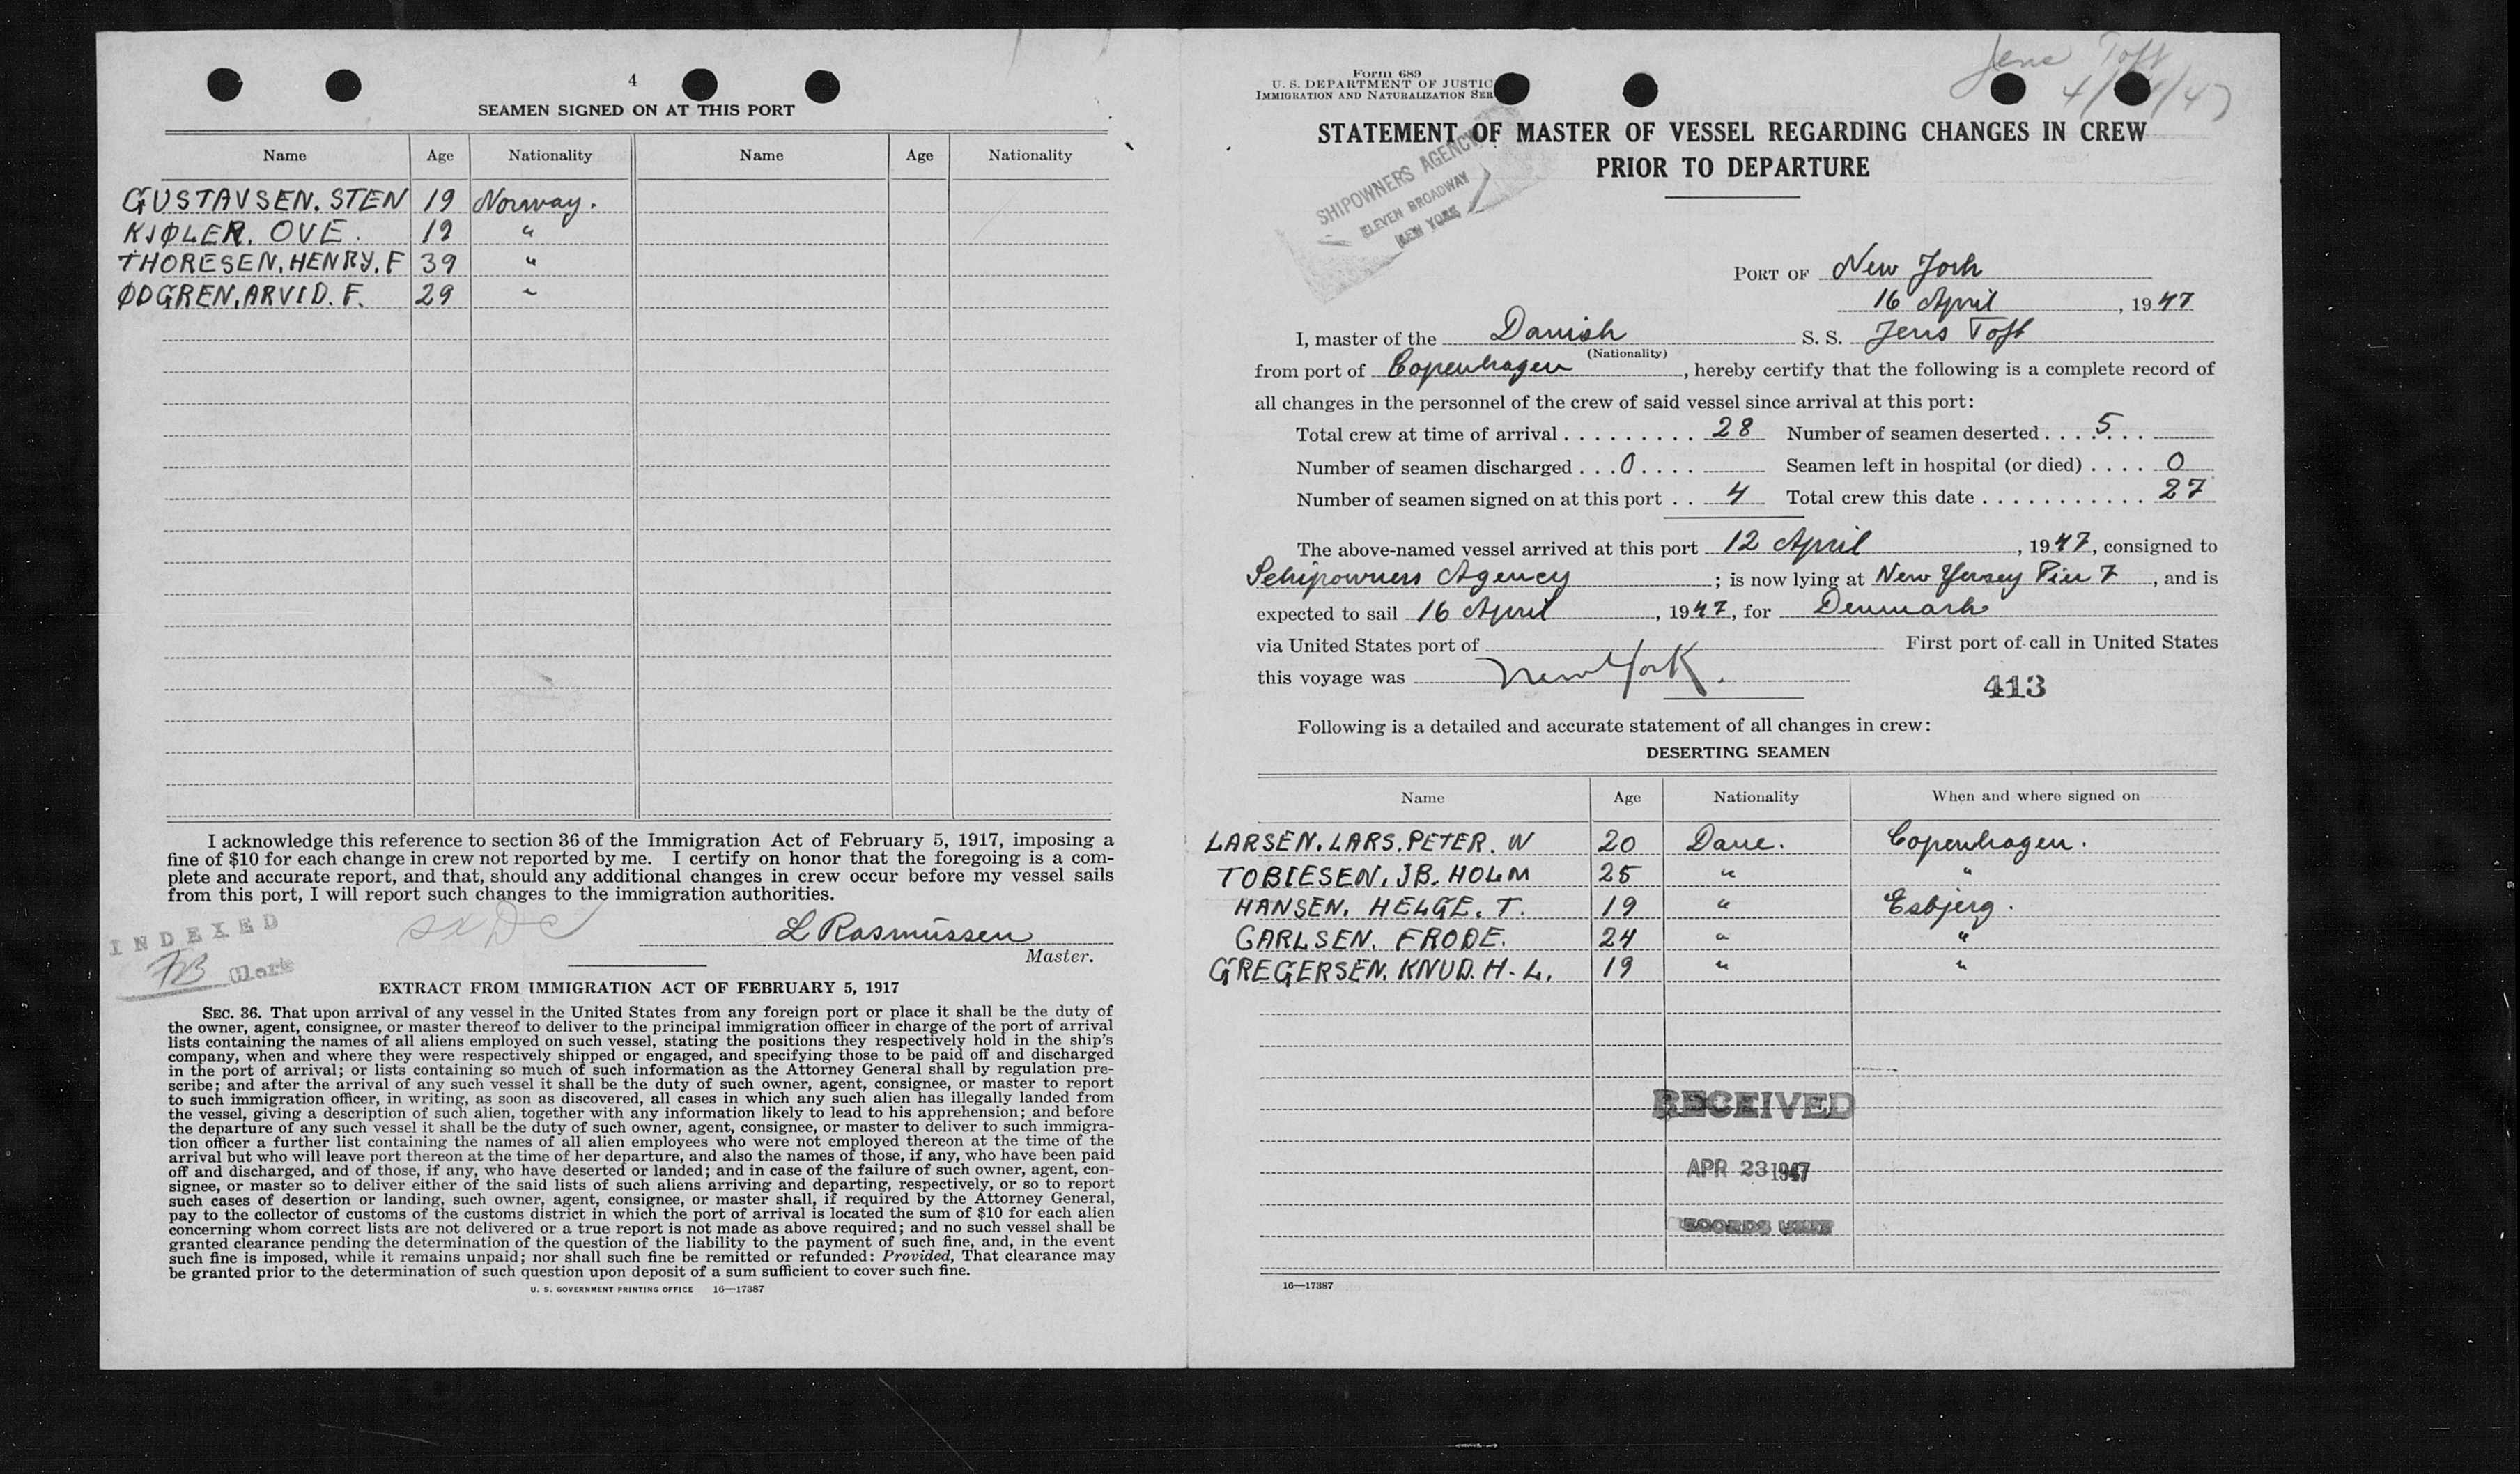 4
SEAMEN SIGNED ON AT THIS PORT
Name Age Nationality Name Age Nationality
GUSTAVSEN. STEN 19 Norway.
KJØLER. OVE. 19 "
THORESEN, HENRY. F 39 "
ØDGREN, ARVID. F. 29 "
I acknowledge this reference to section 36 of the Immigration Act of February 5, 1917, imposing a
fine of $10 for each change in crew not reported by me. I certify on honor that the foregoing is a com-
plete and accurate report, and that, should any additional changes in crew occur before my vessel sails
from this port, I will report such changes to the immigration authorities.
INDEXED
L Rasmussen
Master.
EXTRACT FROM IMMIGRATION ACT OF FEBRUARY 5, 1917
SEC. 36. That upon arrival of any vessel in the United States from any foreign port or place it shall be the duty of
the owner, agent, consignee, or master thereof to deliver to the principal immigration officer in charge of the port of arrival
lists containing the names of all aliens employed on such vessel, stating the positions they respectively hold in the ship's
company, when and where they were respectively shipped or engaged, and specifying those to be paid off and discharged
in the port of arrival; or lists containing so much of such information as the Attorney General shall by regulation pre-
scribe; and after the arrival of any such vessel it shall be the duty of such owner, agent, consignee, or master to report
to such immigration officer, in writing, as soon as discovered, all cases in which any such alien has illegally landed from
the vessel, giving a description of such alien, together with any information likely to lead to his apprehension; and before
the departure of any such vessel it shall be the duty of such owner, agent, consignee, or master to deliver to such immigra-
tion officer a further list containing the names of all alien employees who were not employed thereon at the time of the
arrival but who will leave port thereon at the time of her departure, and also the names of those, if any, who have been paid
off and discharged, and of those, if any, who have deserted or landed; and in case of the failure of such owner, agent, con-
signee, or master so to deliver either of the said lists of such aliens arriving and departing, respectively, or so to report
such cases of desertion or landing, such owner, agent, consignee, or master shall, if required by the Attorney General,
pay to the collector of customs of the customs district in which the port of arrival is located the sum of $10 for each alien
concerning whom correct lists are not delivered or a true report is not made as above required; and no such vessel shall be
granted clearance pending the determination of the question of the liability to the payment of such fine, and, in the event
such fine is imposed, while it remains unpaid; nor shall such fine be remitted or refunded: Provided, That clearance may
be granted prior to the determination of such question upon deposit of a sum sufficient to cover such fine.
U. S. GOVERNMENT PRINTING OFFICE 16—17387
Jens Toft
Form 689
U. S. DEPARTMENT OF JUSTIC
IMMIGRATION AND NATURALIZATION SER
STATEMENT OF MASTER OF VESSEL REGARDING CHANGES IN CREW
PRIOR TO DEPARTURE
SHIPOWNERS AGENCY
ELEVEN BROADWAY
NEW YORK
PORT OF New York
16 April, 1947
I, master of the Danish S. S. Jens Toft
(Nationality)
from port of Copenhagen, hereby certify that the following is a complete record of
all changes in the personnel of the crew of said vessel since arrival at this port:
Total crew at time of arrival 28 Number of seamen deserted 5
Number of seamen discharged 0 Seamen left in hospital (or died) 0
Number of seamen signed on at this port 4 Total crew this date 27
The above-named vessel arrived at this port 12 April, 1947, consigned to
Schipowners Agency; is now lying at New Yersey Pier 7, and is
expected to sail 16 April, 1947, for Denmark
via United States port of First port of call in United States
this voyage was New York.
413
Following is a detailed and accurate statement of all changes in crew:
DESERTING SEAMEN
Name Age Nationality When and where signed on
LARSEN. LARS. PETER. W 20 Dane. Copenhagen.
TOBIESEN, JB. HOLM 25 " "
HANSEN. HELGE. T. 19 " Esbjerg.
CARLSEN. FRODE. 24 " "
GREGERSEN. KNUD. H. L. 19 " "
RECEIVED
APR 23 1947
16—17387